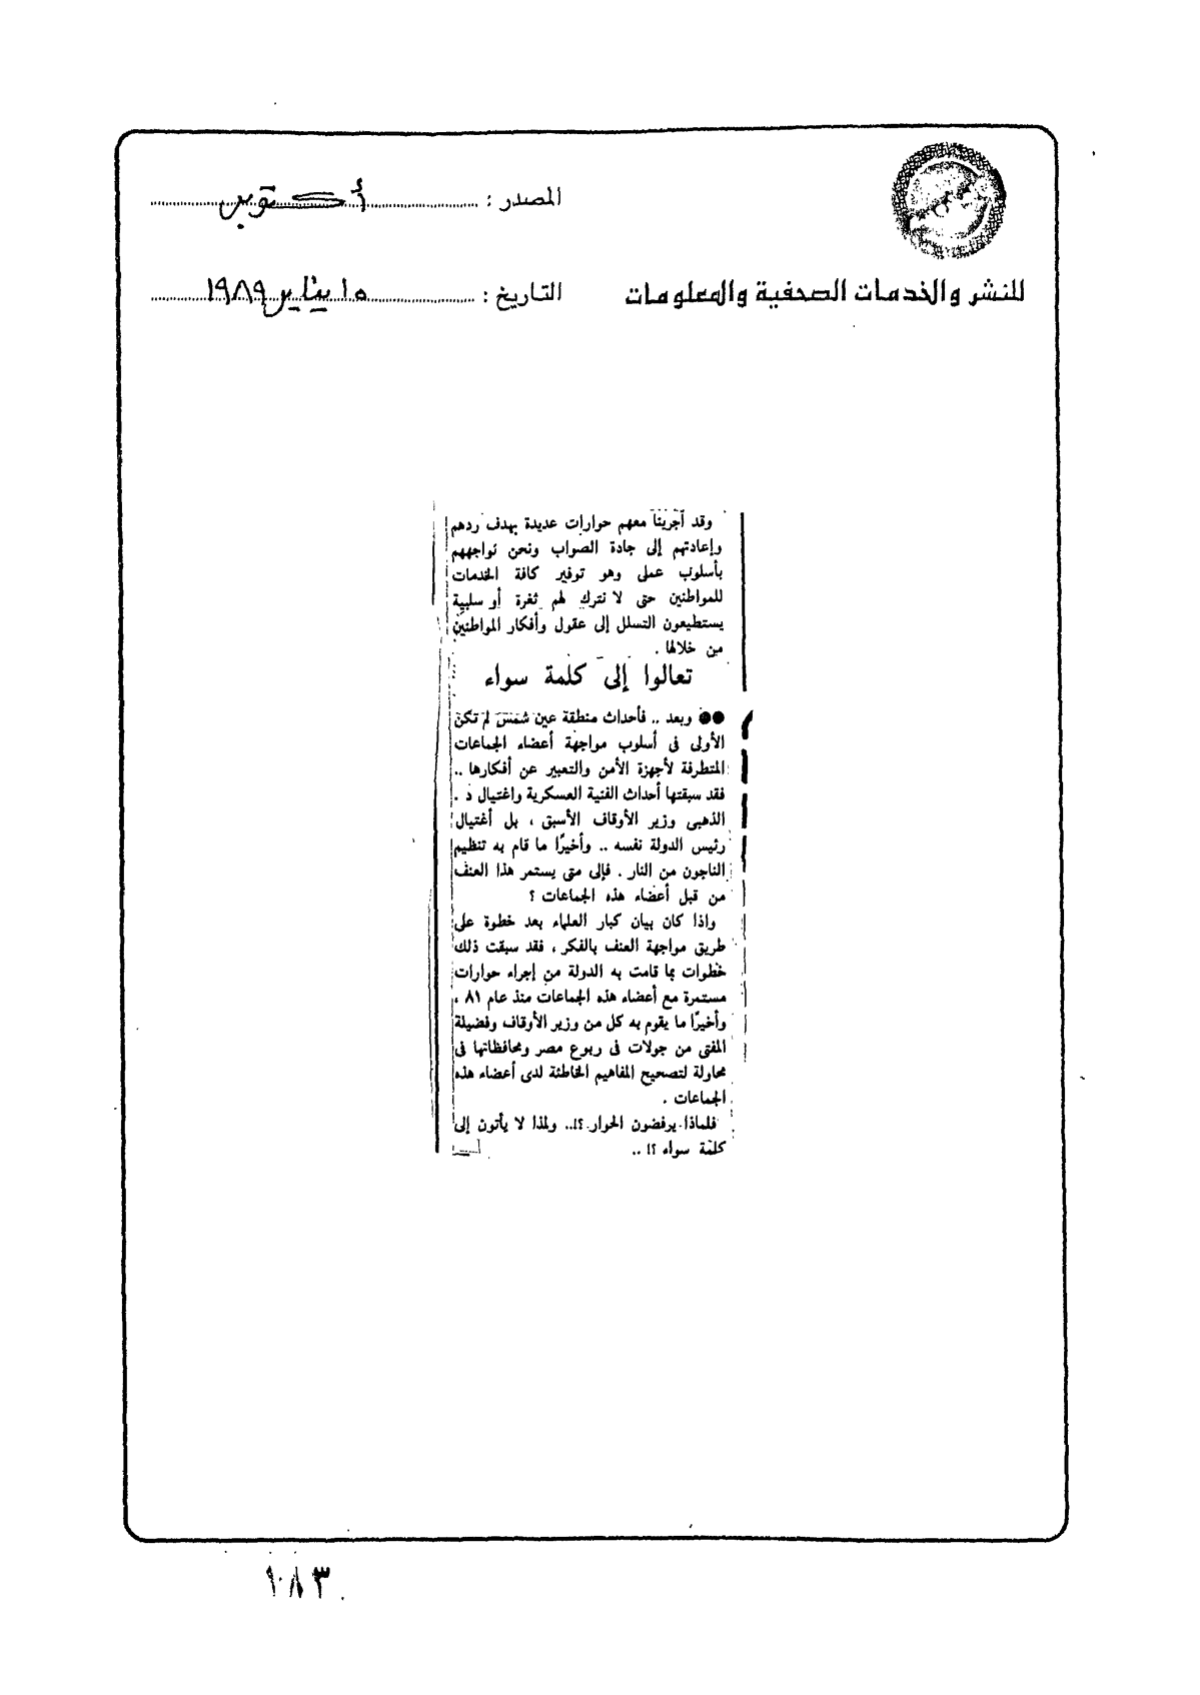 المصدر : أكتوبر
للنشر والخدمات الصحفية والمعلومات
التاريخ : ١٥ يناير ١٩٨٩
وقد أجرينا معهم حوارات عديدة بهدف ردهم
وإعادتهم إلى جادة الصواب ونحن نواجههم
بأسلوب عملى وهو توفير كافة الخدمات
للمواطنين حتى لا نترك لهم ثغرة أو سلبية
يستطيعون التسلل إلى عقول وأفكار المواطنين
من خلالها .
تعالوا إلى كلمة سواء
●● وبعد .. فأحداث منطقة عين شمس لم تكن
الأولى فى أسلوب مواجهة أعضاء الجماعات
المتطرفة لأجهزة الأمن والتعبير عن أفكارها ..
فقد سبقتها أحداث الفنية العسكرية واغتيال د .
الذهبى وزير الأوقاف الأسبق ، بل أغتيال
رئيس الدولة نفسه .. وأخيرًا ما قام به تنظيم
الناجون من النار . فإلى متى يستمر هذا العنف
من قبل أعضاء هذه الجماعات ؟
وإذا كان بيان كبار العلماء بعد خطوة على
طريق مواجهة العنف بالفكر ، فقد سبقت ذلك
خطوات بما قامت به الدولة من إجراء حوارات
مستمرة مع أعضاء هذه الجماعات منذ عام ٨١ ،
وأخيرًا ما يقوم به كل من وزير الأوقاف وفضيلة
المفتى من جولات فى ربوع مصر ومحافظاتها فى
محاولة لتصحيح المفاهيم الخاطئة لدى أعضاء هذه
الجماعات .
فلماذا يرفضون الحوار ؟!.. ولمذا لا يأتون إلى
كلمة سواء ؟! ..
١٠٨٣